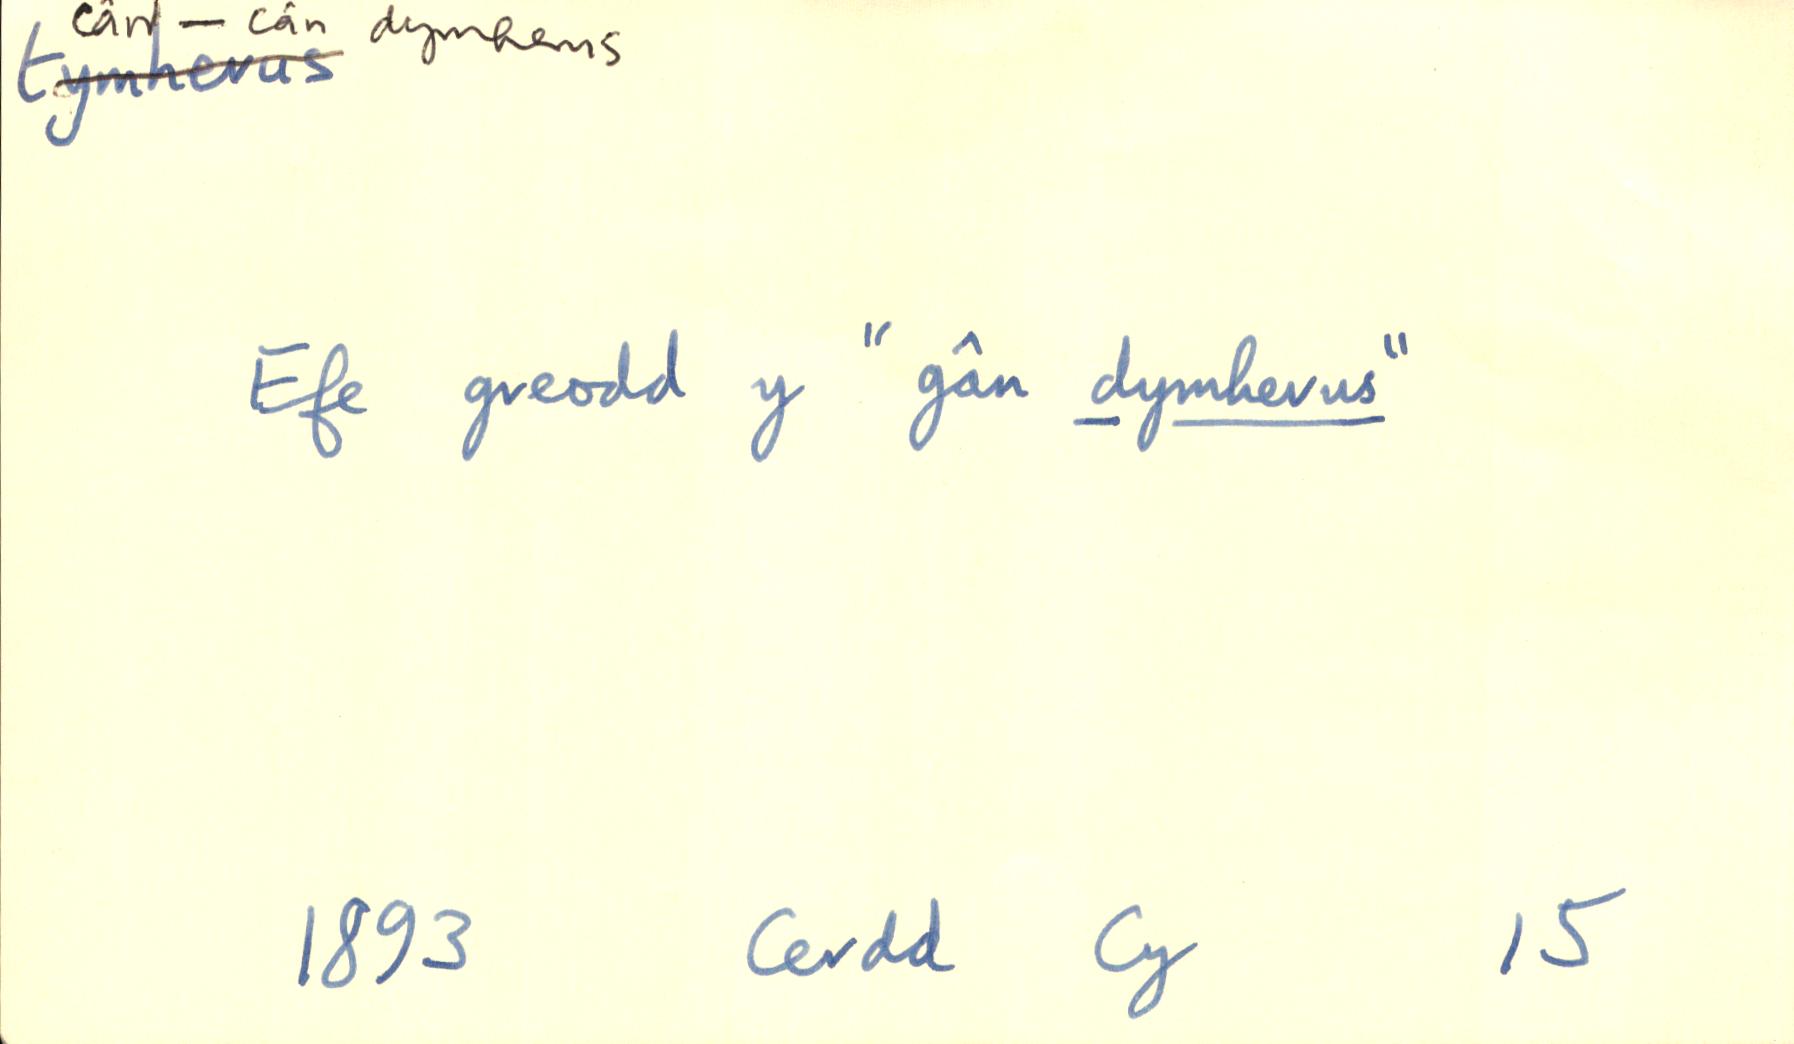 cân – cân dymherus
tymherus
Efe greodd y "gân dymherus"
1893 Cerdd Cy 15